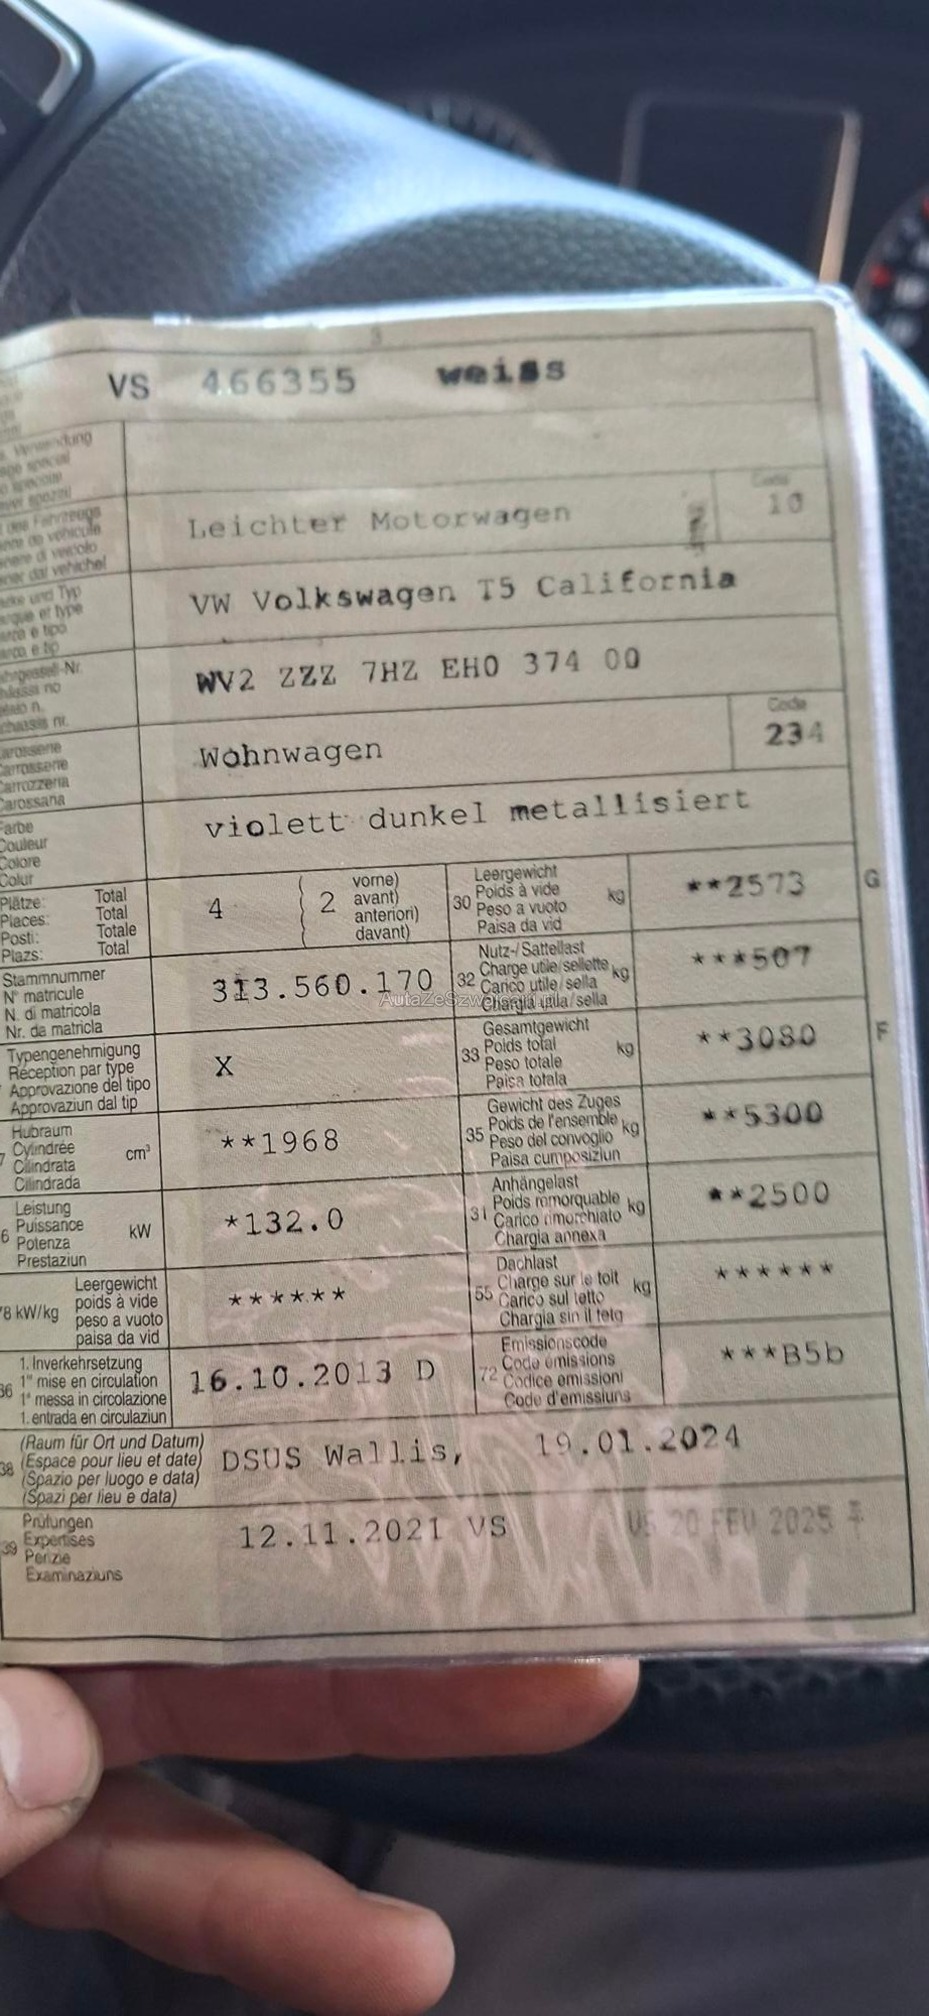 VS 466355 weiss
Code
Leichter Motorwagen 10
VW Volkswagen T5 California
WV2 ZZZ 7HZ EH0 374 00
Code
Wohnwagen 234
Carrosserie
Carrozzeria
Carossana
violett dunkel metallisiert
Farbe
Couleur
Colore
Colur
Plätze: Total
Places: Total
Posti: Totale
Plazs: Total
4 ( 2 vorne)
avant)
anteriori)
davant)
30 Leergewicht
Poids à vide kg
Peso a vuoto
Paisa da vid
**2573 G
Stammnummer
N° matricule
N. di matricola
Nr. da matricla
313.560.170
32 Nutz-/Sattellast
Charge utile/sellette kg
Carico utile/sella
Chargia utila/sella
***507
Typengenehmigung
Réception par type
Approvazione del tipo
Approvaziun dal tip
X
33 Gesamtgewicht
Poids total kg
Peso totale
Paisa totala
**3080 F
Hubraum
Cylindrée cm³
Cilindrata
Cilindrada
**1968
35 Gewicht des Zuges
Poids de l'ensemble kg
Peso del convoglio
Paisa cumposiziun
**5300
Leistung
Puissance kW
Potenza
Prestaziun
*132.0
31 Anhängelast
Poids remorquable kg
Carico rimorchiato
Chargia annexa
**2500
78 kW/kg Leergewicht
poids à vide
peso a vuoto
paisa da vid
******
55 Dachlast
Charge sur le toit kg
Carico sul tetto
Chargia sin il tetg
******
36 1. Inverkehrsetzung
1re mise en circulation
1a messa in circolazione
1. entrada en circulaziun
16.10.2013 D
72 Emissionscode
Code émissions
Codice emissioni
Code d'emissiuns
***B5b
38 (Raum für Ort und Datum)
(Espace pour lieu et date)
(Spazio per luogo e data)
(Spazi per lieu e data)
DSUS Wallis, 19.01.2024
39 Prüfungen
Expertises
Perizie
Examinaziuns
12.11.2021 VS VS 20 FEV 2025